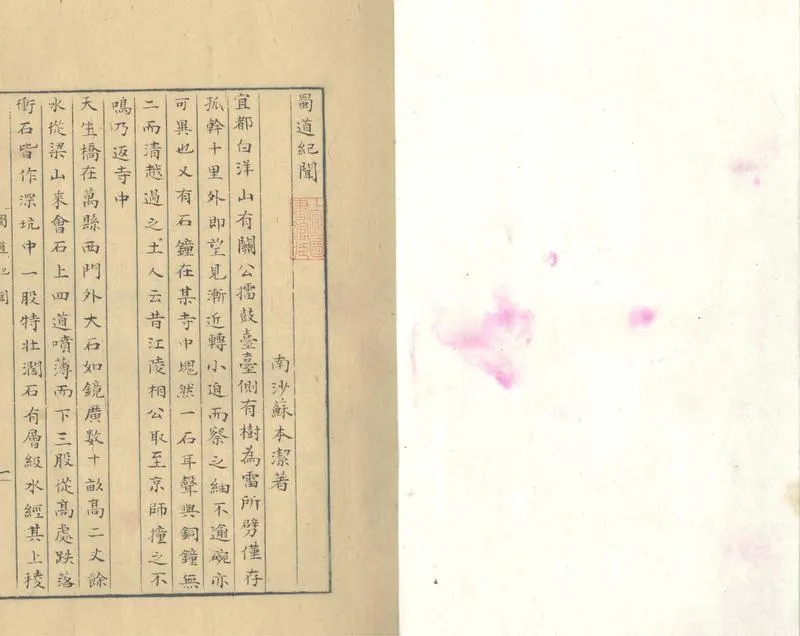 蜀道紀聞
南沙蘇本潔著
宜都白洋山有關公擂鼓臺臺側有樹為雷所劈僅存
孤幹十里外即望見漸近轉小迫而察之細不逾碗亦
可異也又有石鐘在某寺中塊然一石耳聲與銅鐘無
二而清越過之土人云昔江陵相公取至京師撞之不
鳴乃返寺中
天生橋在萬縣西門外大石如鏡廣数十畝高二丈餘
水從梁山來會石上四道噴薄而下三股從高處跌落
衝石皆作深坑中一股特壯濶石有層級水經其上稜
蜀道紀聞
一